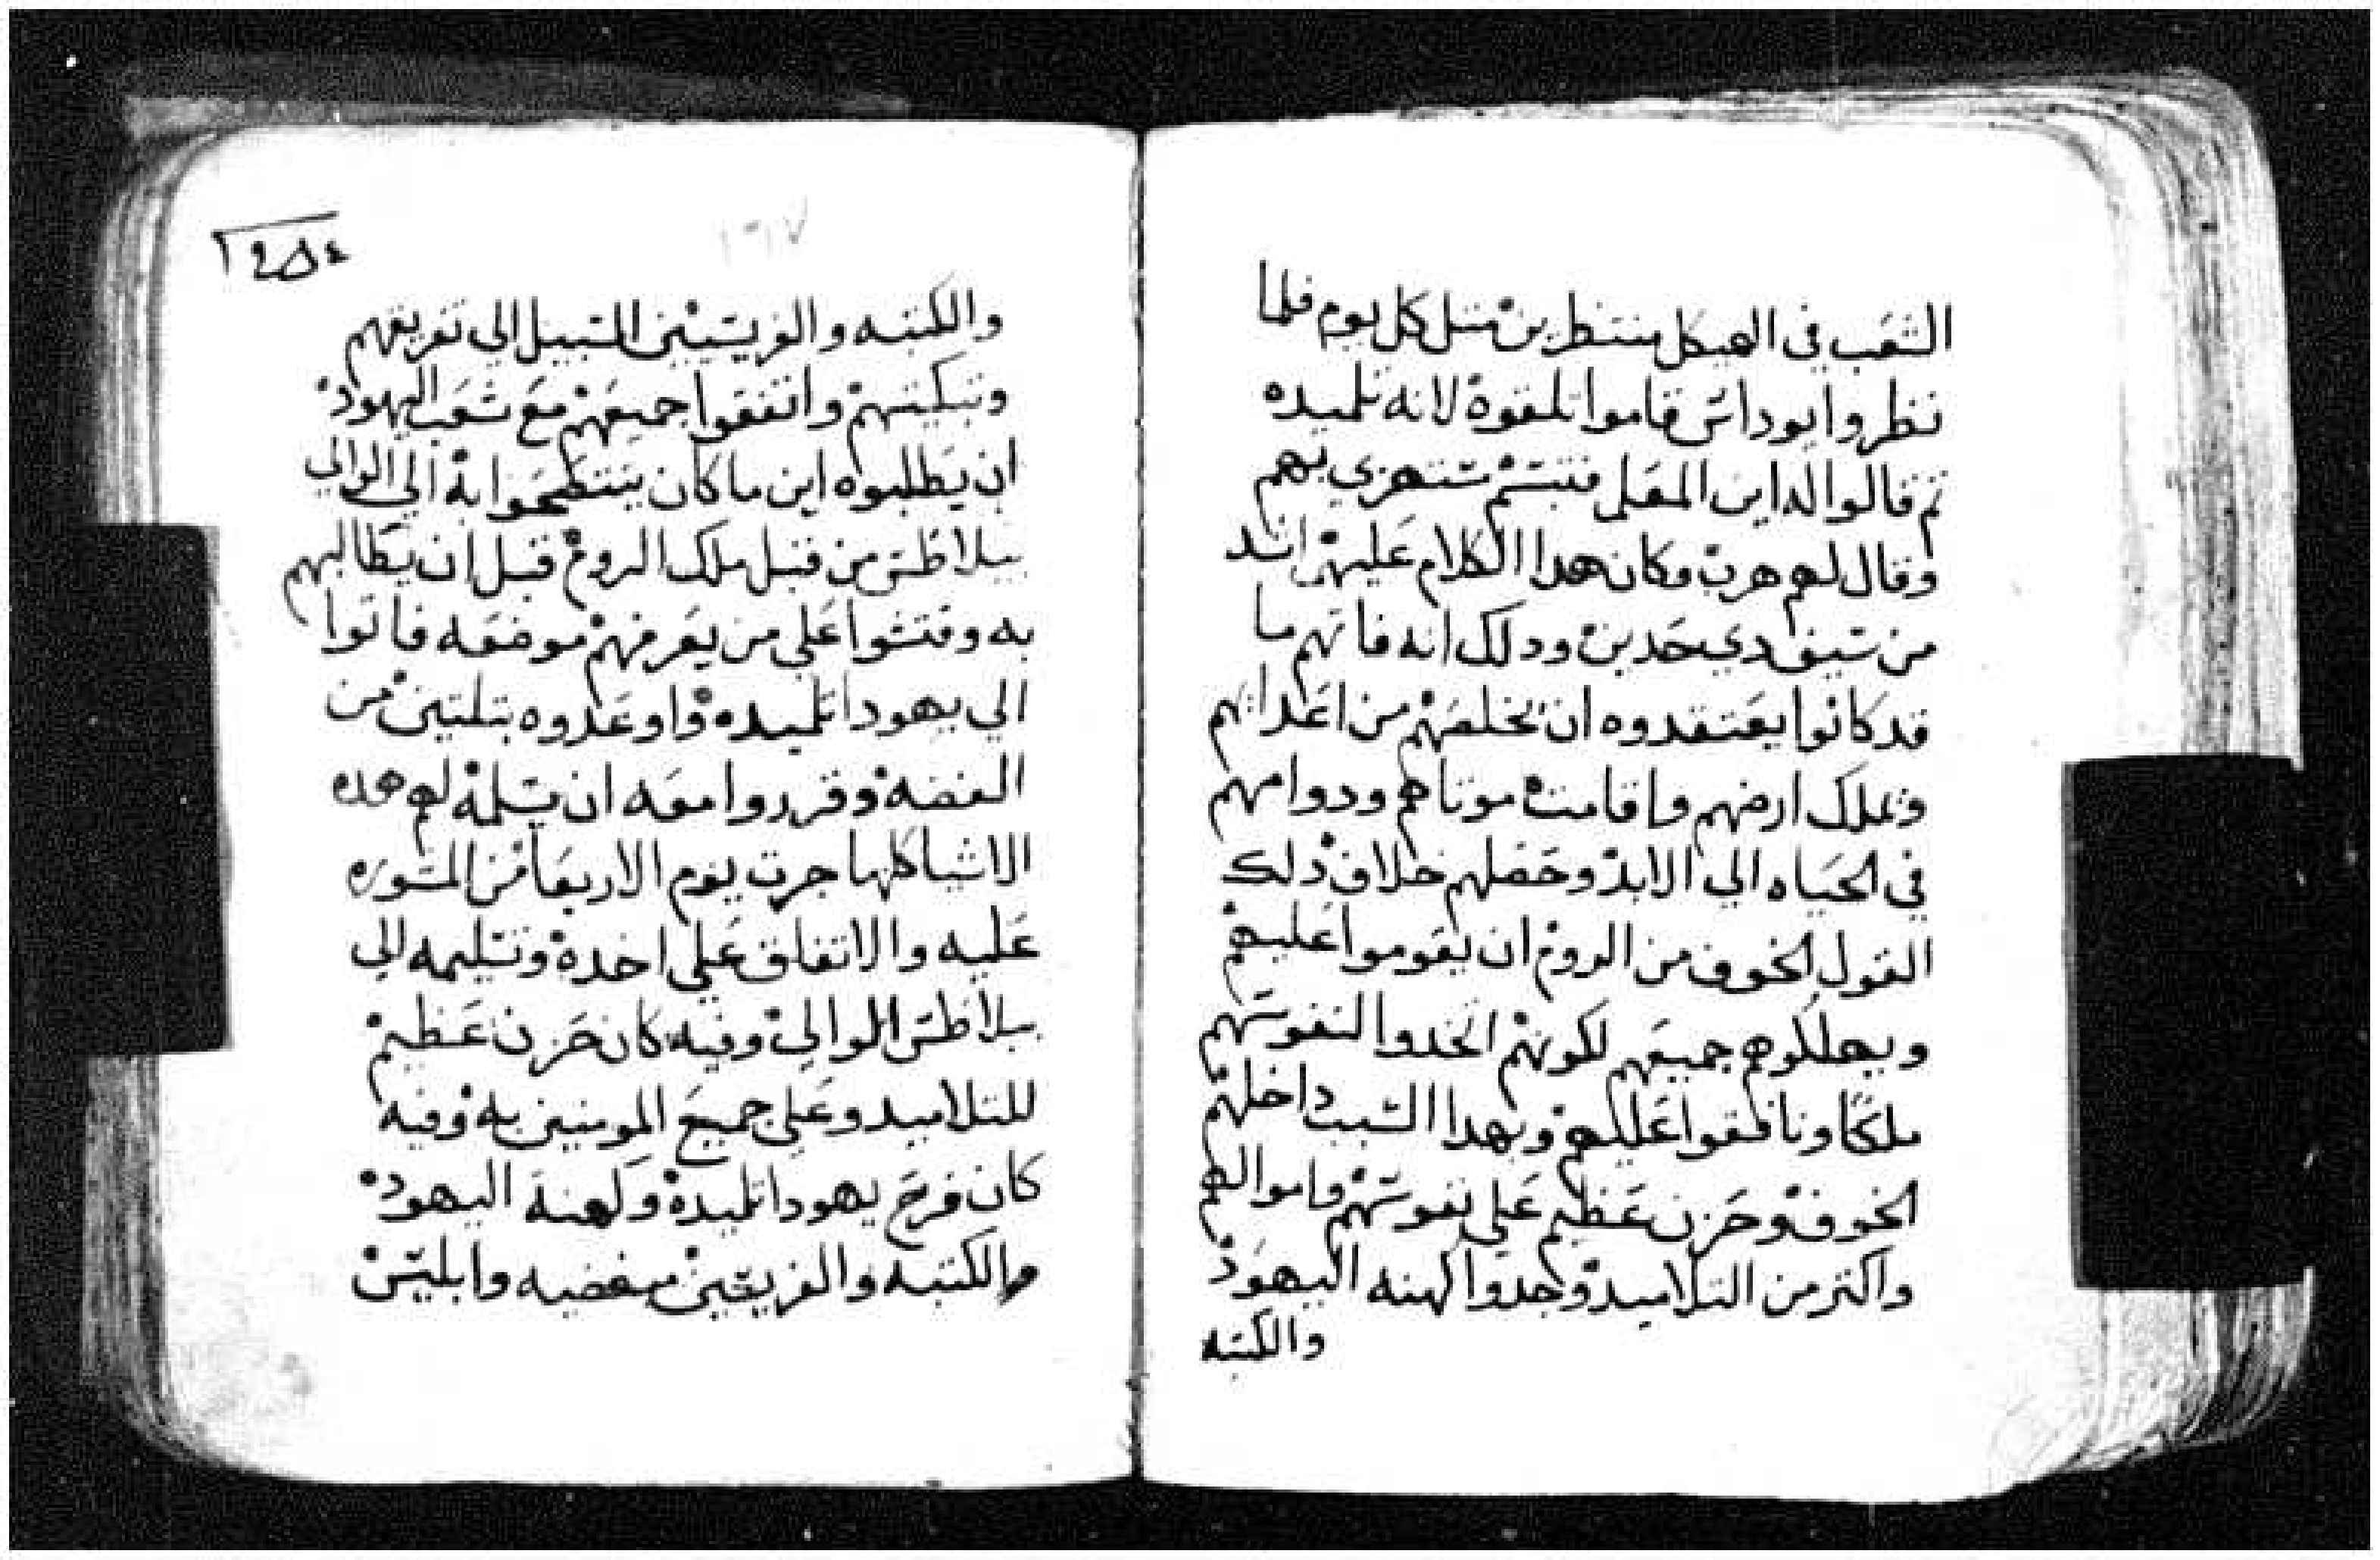 الشعب في الهيكل منتظرين متل كل يوم فلما
نظروا يوداس قاموا تلقوه لانه تلميده
تم قالوا له اين المعلم فتبسم ستهزي بهم
وقال لهم هرب وكان هدا الكلام عليهم اشد
من سيف دي حدين ودلك انه فاتهم ما
قد كانوا يعتقدوه ان يخلصهم من اعدايهم
وتملك ارضهم واقامت موتاهم ودوامهم
في الحياه الي الابد وحصلهم خلاف دلك
القول الخوف من الروم ان يقوموا عليهم
ويهلكوهم جميعهم لكونهم اتخدوا لنفوسهم
ملكا ونافقوا عليهم وبهدا السبب داخلهم
الخوف وحزن عظيم علي نفوسهم واموالهم
واكتر من التلاميد وجدوا كهنه اليهود
والكتبه
١٦٧
والكتبه والفريسيين السبيل الي تفريقهم
وتبكيتهم واتفقوا جميعهم مع شعب اليهود
ان يطلبوه اين ما كان ينتصحوا به الي الوالي
بيلاطس من قبل ملك الروم قبل ان يطالبهم
به وفتشوا علي من يعرفهم موضعه فاتوا
الي يهودا تلميده واوعدوه بتلتين من
الفضه وقرروا معه ان يسلمه لهم هده
الاشيا كلها جرت يوم الاربعا من المشوره
عليه والاتفاق علي اخده وتسليمه الي
بيلاطس الوالي وفيه كان حزن عظيم
للتلاميد وعلي جميع المومنين به وفيه
كان فرح يهودا تلميده وكهنة اليهود
والكتبه والفريسيين مبغضيه وابليس